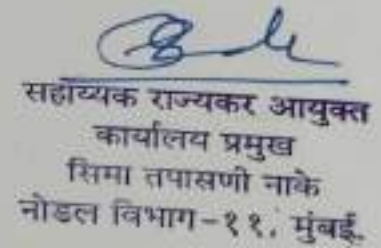 सहाय्यक राज्यकर आयुक्त
कार्यालय प्रमुख
सिमा तपासणी नाके
नोडल विभाग-११, मुंबई.